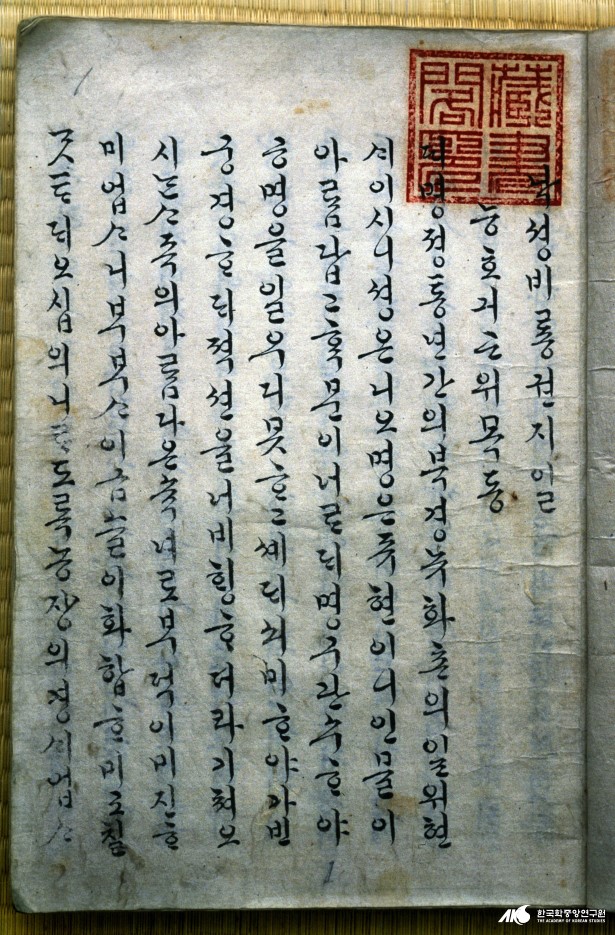 낙셩비룡권지일
능효긔은위목동
대명졍통년간의북경뉴화촌의일위현
셰이시니셩은니오명은쥬현이니인물이
아름답고학문이너르디명구란수ᄒᆞ야
공명을일우디못ᄒᆞ고셰디치비ᄒᆞ야가빈
궁경ᄒᆞ되적션을너비ᄒᆡᆼᄒᆞ더라기쳐오
시ᄂᆞᆫᄉᆞ족의아름다온슉녀로부덕이미진ᄒᆞ
미업ᄉᆞ니부부ᄉᆞ이금슬이화합ᄒᆞ미조칠
ᄀᆞᆺᄐᆞ되오십의니ᄅᆞ도록농장의경ᄉᆡ업ᄉᆞ
藏書
閣
1
AKS 한국학중앙연구원
THE ACADEMY OF KOREAN STUDIES